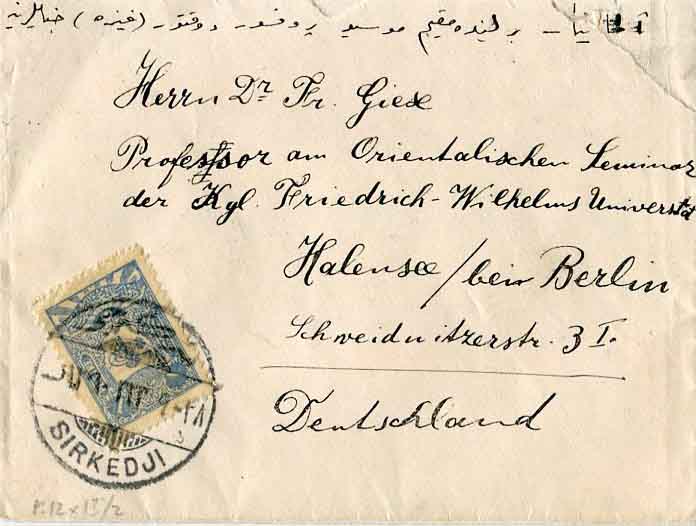 برلينده مقيم موسيو پروفسور دوقتور (غيزه) جنابلرينه
Herrn Dr. Fr. Giese
Professor am Orientalischen Seminar
der Kgl. Friedrich-Wilhelms Universtät
Halensee/bein Berlin
Schweidnitzerstr. 3 I.
Deutschland
SIRKEDJI
P. 12 x 13 1/2